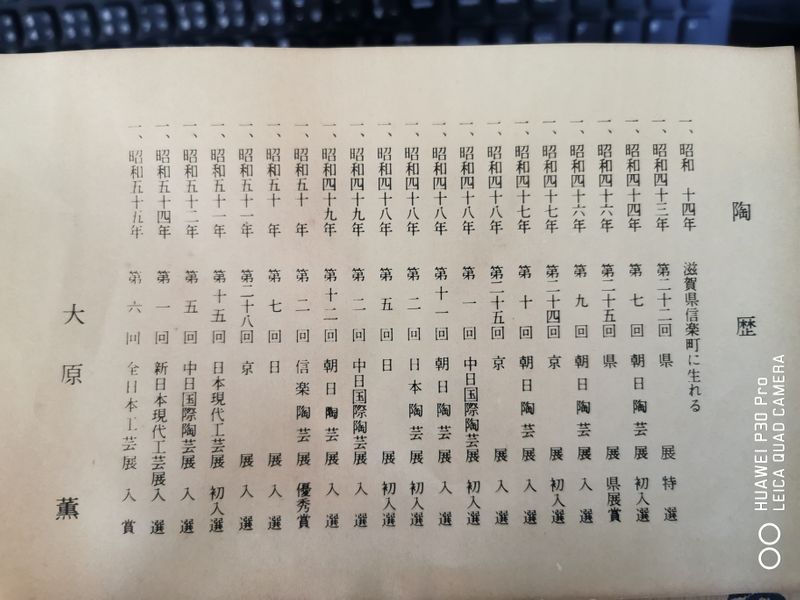 陶歴
一、昭和 十四年 滋賀県信楽町に生れる
一、昭和四十三年 第二十二回 県展 特選
一、昭和四十四年 第七回 朝日陶芸展 初入選
一、昭和四十六年 第二十五回 県展 県展賞
一、昭和四十六年 第九回 朝日陶芸展 入選
一、昭和四十七年 第二十四回 京展 初入選
一、昭和四十七年 第十回 朝日陶芸展 入選
一、昭和四十八年 第二十五回 京展 入選
一、昭和四十八年 第一回 中日国際陶芸展 初入選
一、昭和四十八年 第十一回 朝日陶芸展 入選
一、昭和四十八年 第二回 日本陶芸展 初入選
一、昭和四十八年 第五回 日展 初入選
一、昭和四十九年 第二回 中日国際陶芸展 入選
一、昭和四十九年 第十二回 朝日陶芸展 入選
一、昭和五十年 第二回 信楽陶芸展 優秀賞
一、昭和五十年 第七回 日展 入選
一、昭和五十一年 第二十八回 京展 入選
一、昭和五十一年 第十五回 日本現代工芸展 初入選
一、昭和五十二年 第五回 中日国際陶芸展 入選
一、昭和五十四年 第一回 新日本現代工芸展入選
一、昭和五十五年 第六回 全日本工芸展 入賞
大原 薫
HUAWEI P30 Pro
LEICA QUAD CAMERA